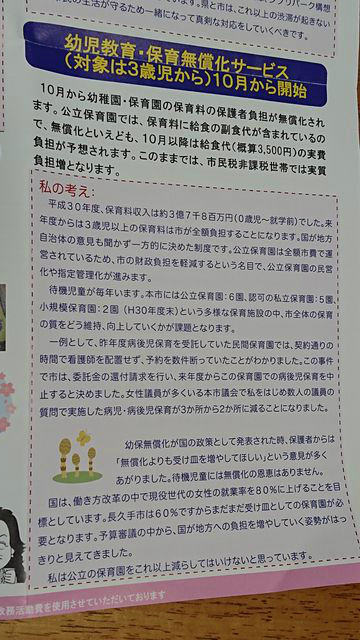 民の生活が守るため一緒になって真剣な対応をしていくべきです。
県と市は、これ以上の渋滞が起きない
幼児教育・保育無償化サービス
（対象は3歳児から）10月から開始
10月から幼稚園・保育園の保育料の保護者負担が無償化され
ます。公立保育園では、保育料に給食の副食代が含まれているの
で、無償化といえども、10月以降は給食代（概算3,500円）の実費
負担が予想されます。このままでは、市民税非課税世帯では実質
負担増となります。
私の考え：
平成30年度、保育料収入は約3億7千8百万円（0歳児～就学前）でした。来
年度からは3歳児以上の保育料は市が全額負担することになります。国が地方
自治体の意見も聞かず一方的に決めた制度です。公立保育園は全額市費で運
営されているため、市の財政負担を軽減するという名目で、公立保育園の民営
化や指定管理化が進みます。
待機児童が毎年います。本市には公立保育園：6園、認可の私立保育園：5園、
小規模保育園：2園（H30年度末）という多様な保育施設の中、市全体の保育
の質をどう維持、向上していくかが課題となります。
一例として、昨年度病後児保育を受託していた民間保育園では、契約通りの
時間で看護師を配置せず、予約を数件断っていたことがわかりました。この事件
で市は、委託金の還付請求を行い、来年度からこの保育園での病後児保育を中
止すると決めました。女性議員が多くいる本市議会で私をはじめ数人の議員の
質問で実施した病児・病後児保育が3か所から2か所に減ることになりました。
幼保無償化が国の政策として発表された時、保護者からは
「無償化よりも受け皿を増やしてほしい」という意見が多く
ありました。待機児童には無償化の恩恵はありません。
国は、働き方改革の中で現役世代の女性の就業率を80％に上げることを目
標としています。長久手市は60％ですからまだまだ受け皿としての保育園が必
要となります。予算審議の中から、国が地方への負担を増やしていく姿勢がはっ
きりと見えてきました。
私は公立の保育園をこれ以上減らしてはいけないと思っています。
政務活動費を使用させていただいております